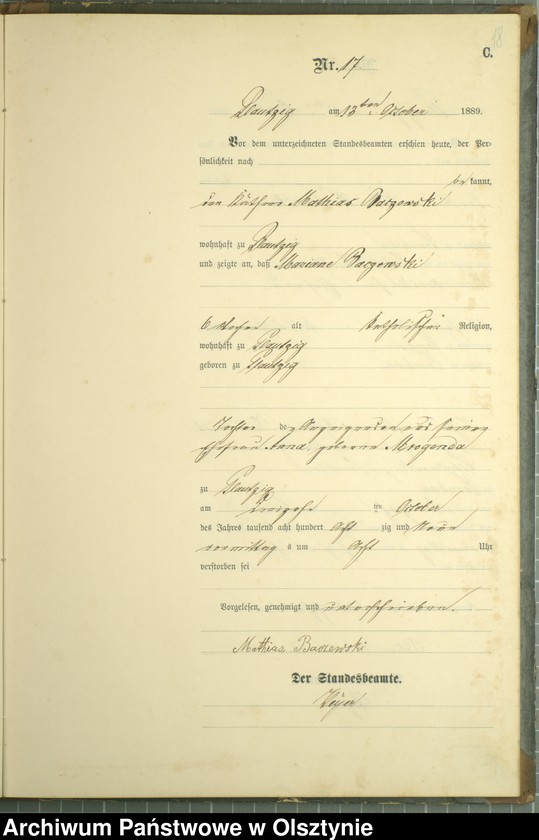 18
C.
Nr. 17
Plautzig am 13ten October 1889.
Vor dem unterzeichneten Standesbeamten erschien heute, der Per-
sönlichkeit nach
bekannt,
Mathias Baczewski
wohnhaft zu Plautzig
und zeigte an, daß Mariane Baczewski
6 Wochen alt Katholischer Religion,
wohnhaft zu Plautzig
geboren zu Plautzig
Tochter des Anzeigenden und seiner
Ehefrau Anna geborene Mrogenda
zu Plautzig
am ten October
des Jahres tausend acht hundert Acht zig und Neun
vormittags um Acht Uhr
verstorben sei
Vorgelesen, genehmigt und unterschrieben.
Mathias Baczewski
Der Standesbeamte.
Archiwum Państwowe w Olsztynie